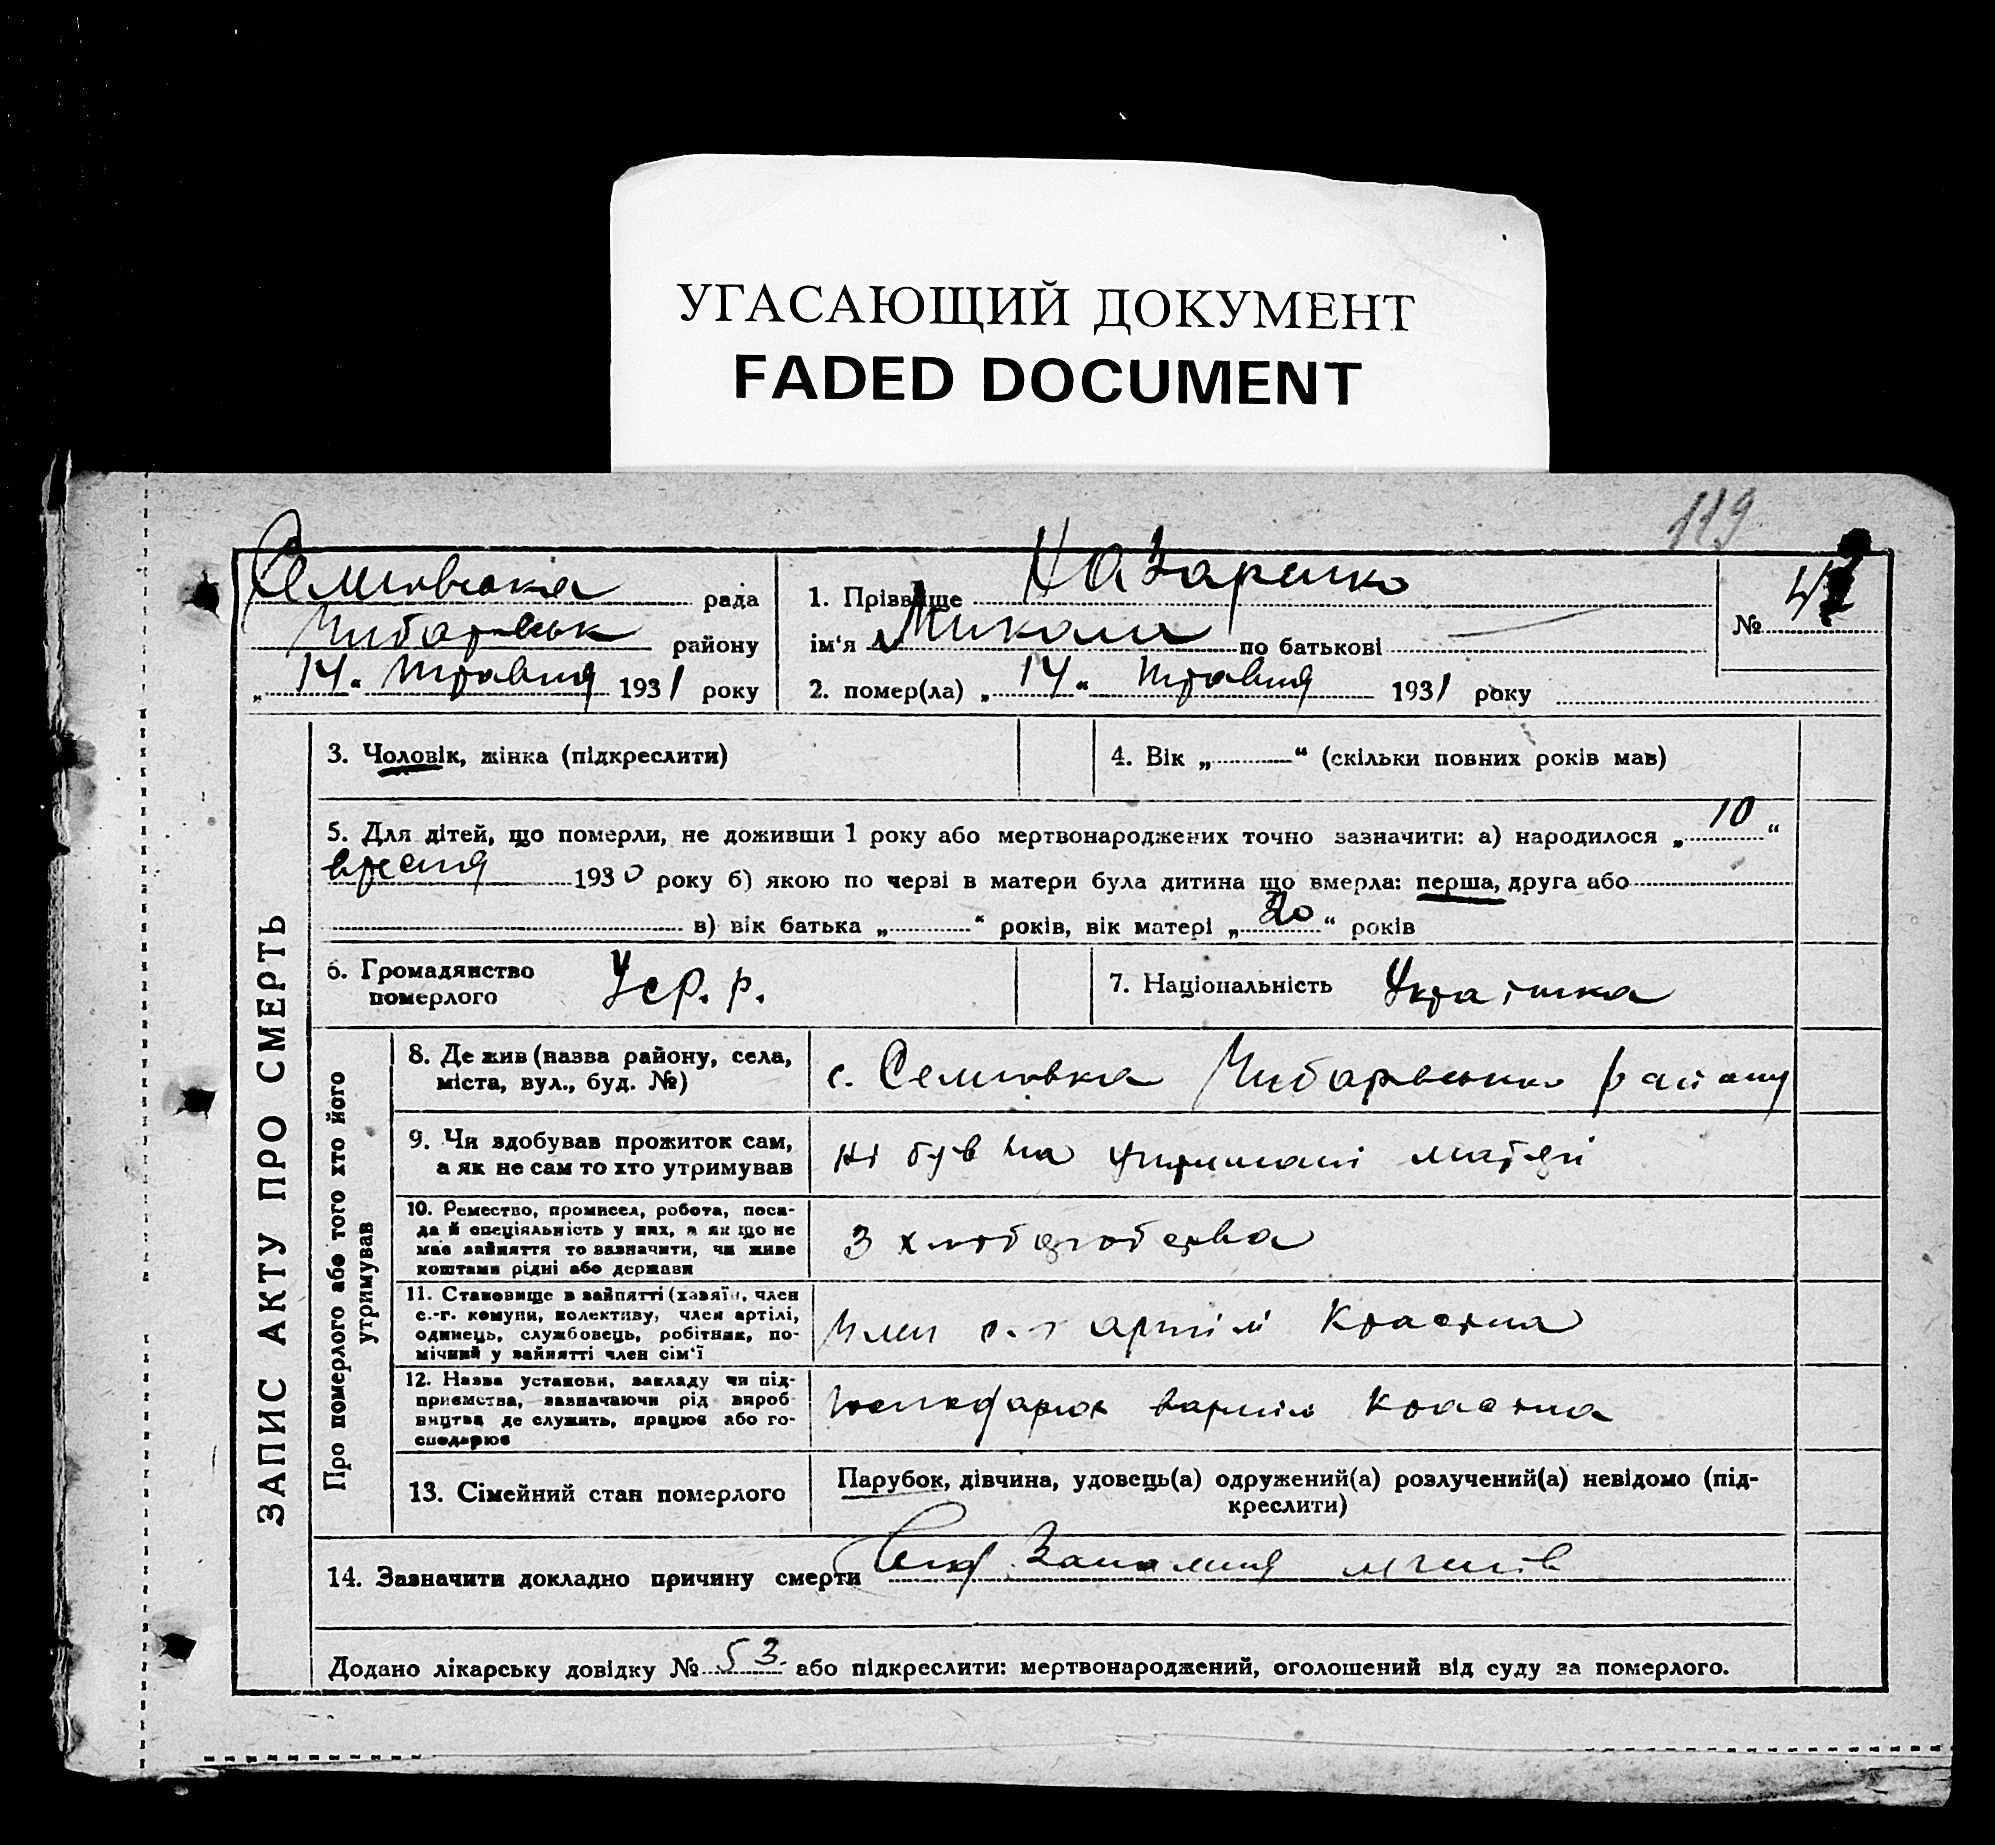 УГАСАЮЩИЙ ДОКУМЕНТ
FADED DOCUMENT
119
Семнівська рада
району
„ 14 “ Травня 1931 року
1. Прізвище Назаренко
ім'я Микола по батькові
№ 4
2. помер(ла) „ 14 “ Травня 1931 року
ЗАПИС АКТУ ПРО СМЕРТЬ
3. Чоловік, жінка (підкреслити)
4. Вік „ “ (скільки повних років мав)
5. Для дітей, що померли, не доживши 1 року або мертвонароджених точно зазначити: а) народилося „ 10 “
вресня 1930 року б) якою по черзі в матери була дитина що вмерла: перша, друга або
в) вік батька „ “ років, вік матері „ 20 “ років
6. Громадянство
померлого
Уср. р.
7. Національність Українка
Про померлого або того хто його
утримував
8. Де жив (назва району, села,
міста, вул., буд. №)
с. району
9. Чи здобував прожиток сам,
а як не сам то хто утримував
ні був на утримані матері
10. Ремество, промисел, робота, поса-
да й спеціяльність у них, а як що не
має зайняття то вазначити, чи живе
коштами рідні або держави
З хліборобства
11. Становище в зайнятті (хазяїн, член
с.-г. комуни, колективу, член артілі,
одинець, службовець, робітник, по-
мічний у зайнятті член сім'ї
Член с.-г артілі Красіна
12. Назва установи, закладу чи під-
приємства, зазначаючи рід вироб-
вицтва де служить, працює або го-
сподарює
вартілі Красіна
13. Сімейний стан померлого
Парубок, дівчина, удовець(а) одружений(а) розлучений(а) невідомо (під-
креслити)
14. Зазначити докладно причину смерти Запалиння
Додано лікарську довідку № 53. або підкреслити: мертвонароджений, оголошений від суду за померлого.